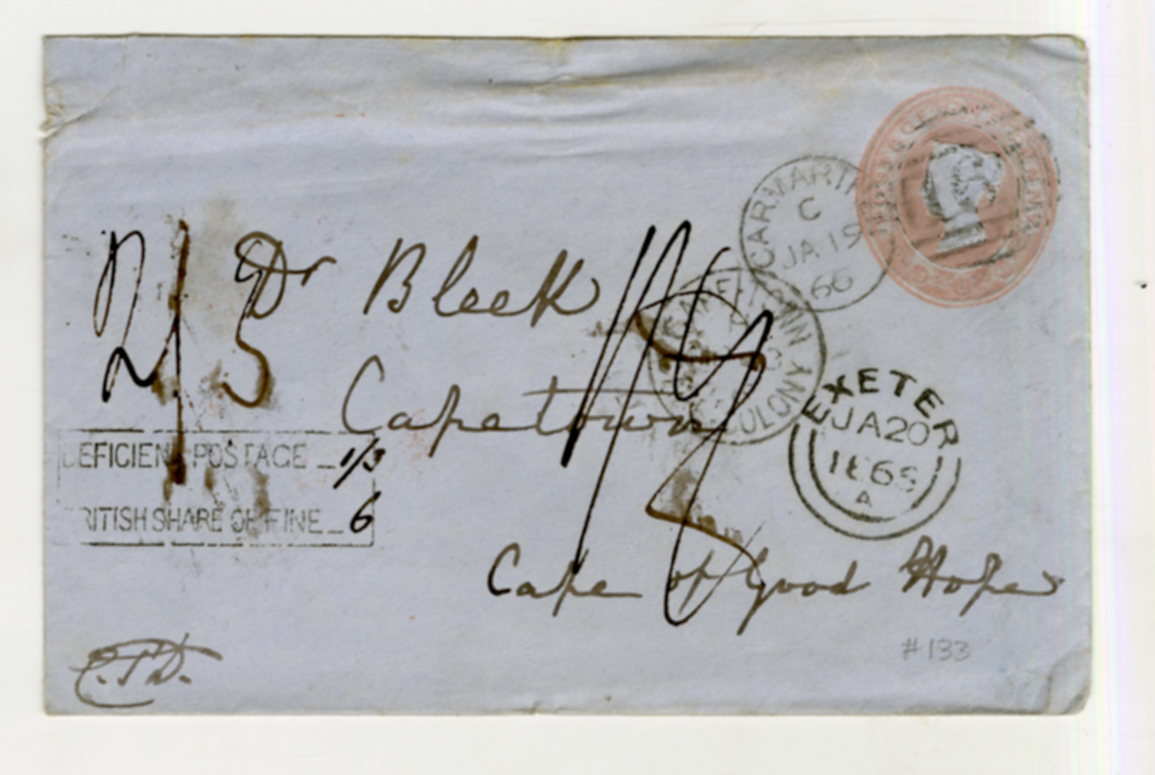 CARMARTH
C
JA 19
66
2/3 Dr Bleek
COLONY
Capetown
EXETER
JA 20
1866
A
DEFICIENT POSTAGE - 1/3
BRITISH SHARE OF FINE - 6
Cape of Good Hope
#133